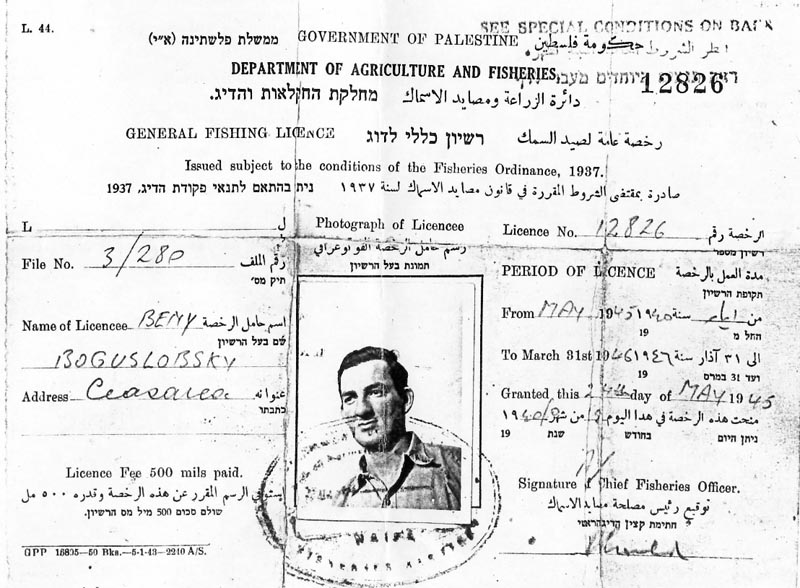 L. 44.
SEE SPECIAL CONDITIONS ON BACK
ממשלת פלשתינה (א״י) GOVERNMENT OF PALESTINE حكومة فلسطين
انظر الشروط
DEPARTMENT OF AGRICULTURE AND FISHERIES.
12826
מחלקת החקלאות והדיג. دائرة الزراعة ومصايد الاسماك
GENERAL FISHING LICENCE רשיון כללי לדוג رخصة عامة لصيد السمك
Issued subject to the conditions of the Fisheries Ordinance, 1937.
ניתן בהתאם לתנאי פקודת הדיג, 1937 صادرة بمقتضى الشروط المقررة في قانون مصايد الاسماك لسنة ١٩٣٧
L ل
Photograph of Licencee
رسم حامل الرخصة الفوتوغرافي
תמונת בעל הרשיון
Licence No. 12826 الرخصة رقم
רשיון מספר
File No. 3/280 رقم الملف
תיק מס׳
PERIOD OF LICENCE مدة العمل بالرخصة
תקופת הרשיון
From MAY 1945 ١٩٤٥ سنة من
החל מ 19
Name of Licencee BENY اسم حامل الرخصة
שם בעל הרשיון
BOGUSLOBSKY
To March 31st 1946 ١٩٤٦ الى ٣١ آذار سنة
ועד 31 במרס 19
Address Ceasarea عنوانه
כתבתו
Granted this 24th day of MAY 1945
منحت هذه الرخصة في هذا اليوم من شهر
ניתן היום בחודש שנת 19
Licence Fee 500 mils paid.
استوفي الرسم المقرر عن هذه الرخصة وقدره ٥٠٠ مل
שולם סכום 500 מיל מס הרשיון.
Signature of Chief Fisheries Officer.
توقيع رئيس مصلحة مصايد الاسماك
חתימת קצין הדיג הראשי
HAIFA
FISHERIES
GPP 15895—50 Bks.—5-1-43—2210 A/S.